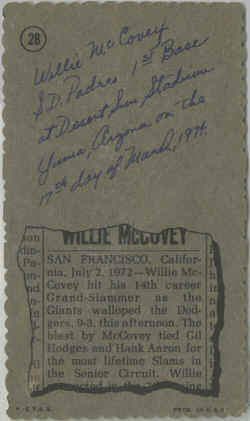 28
Willie McCovey
S.D. Padres 1st Base
at Desert Sun Stadium
Yuma, Arizona on the
17th day of March, 1974.
WILLIE McCOVEY
SAN FRANCISCO, Califor-
nia, July 2, 1972—Willie Mc-
Covey hit his 14th career
Grand-Slammer as the
Giants walloped the Dod-
gers, 9-3, this afternoon. The
blast by McCovey tied Gil
Hodges and Hank Aaron for
the most lifetime Slams in
the Senior Circuit. Willie